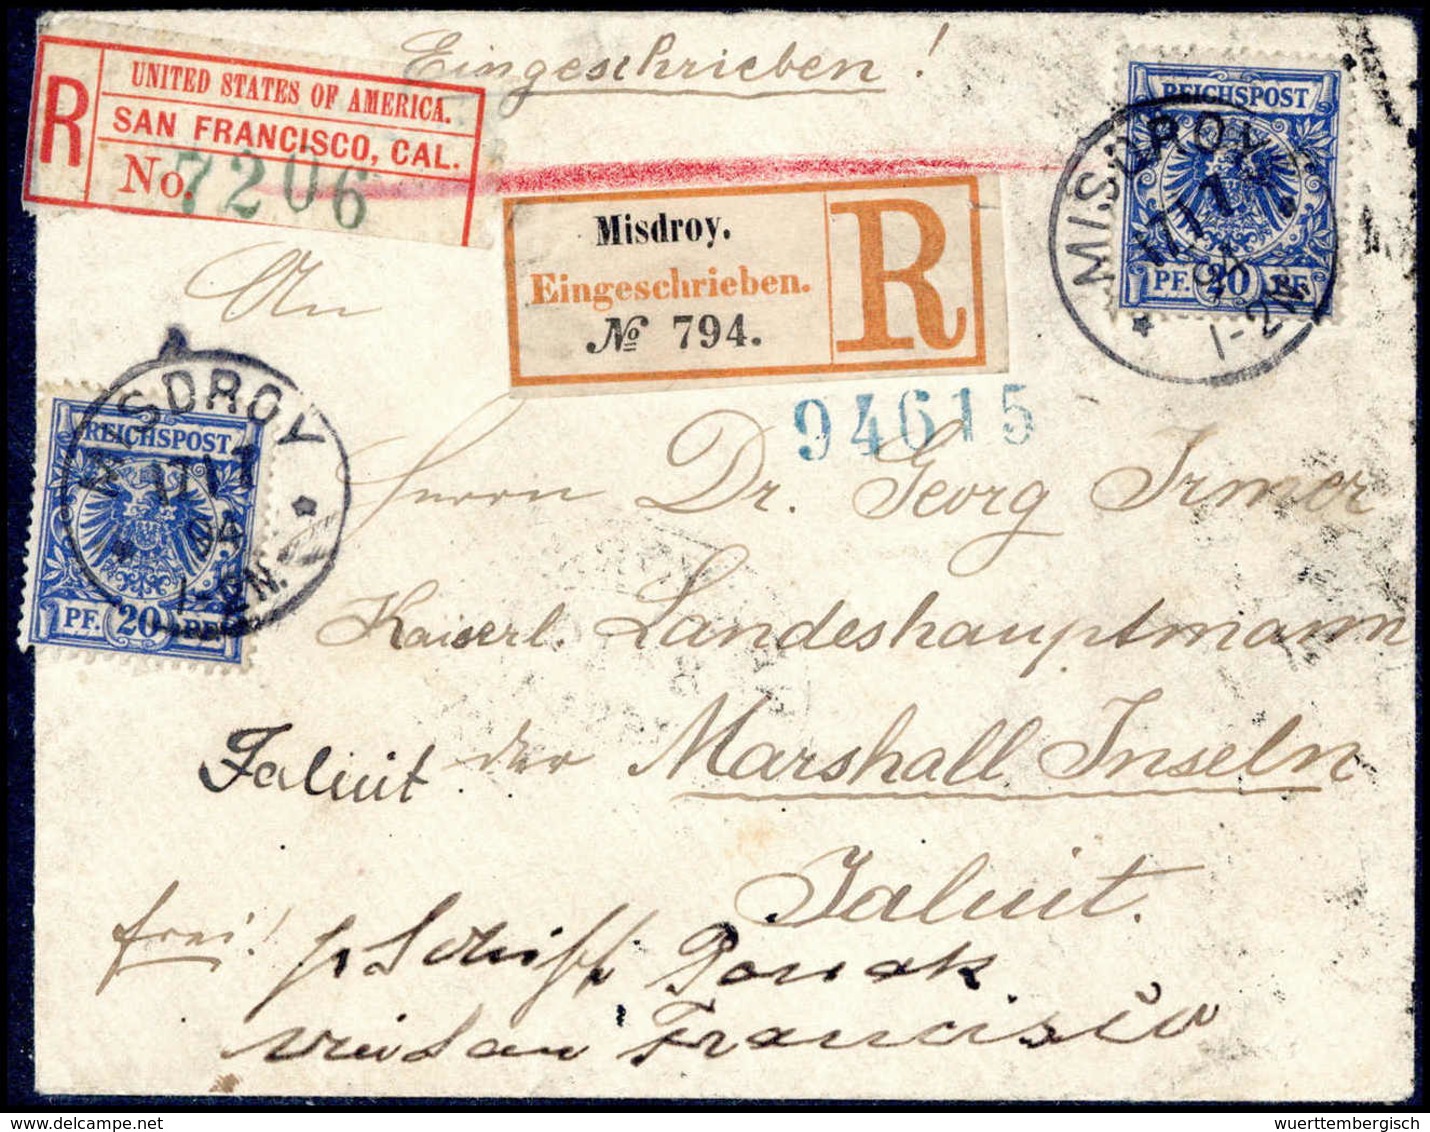 Eingeschrieben!
R UNITED STATES OF AMERICA.
SAN FRANCISCO, CAL.
No. 7206
REICHSPOST
PF. 20 PF.
MISDROY
17/1
94
1-2N.
Misdroy.
Eingeschrieben.
№ 794.
R
94615
An
REICHSPOST
PF. 20 PF.
MISDROY
17/1
94
1-2N.
Herrn Dr. Georg Irmer
Kaiserl. Landeshauptmann
der Marshall Inseln
Jaluit
Jaluit.
frei!
p Schiff
via San Francisco
wuerttembergisch